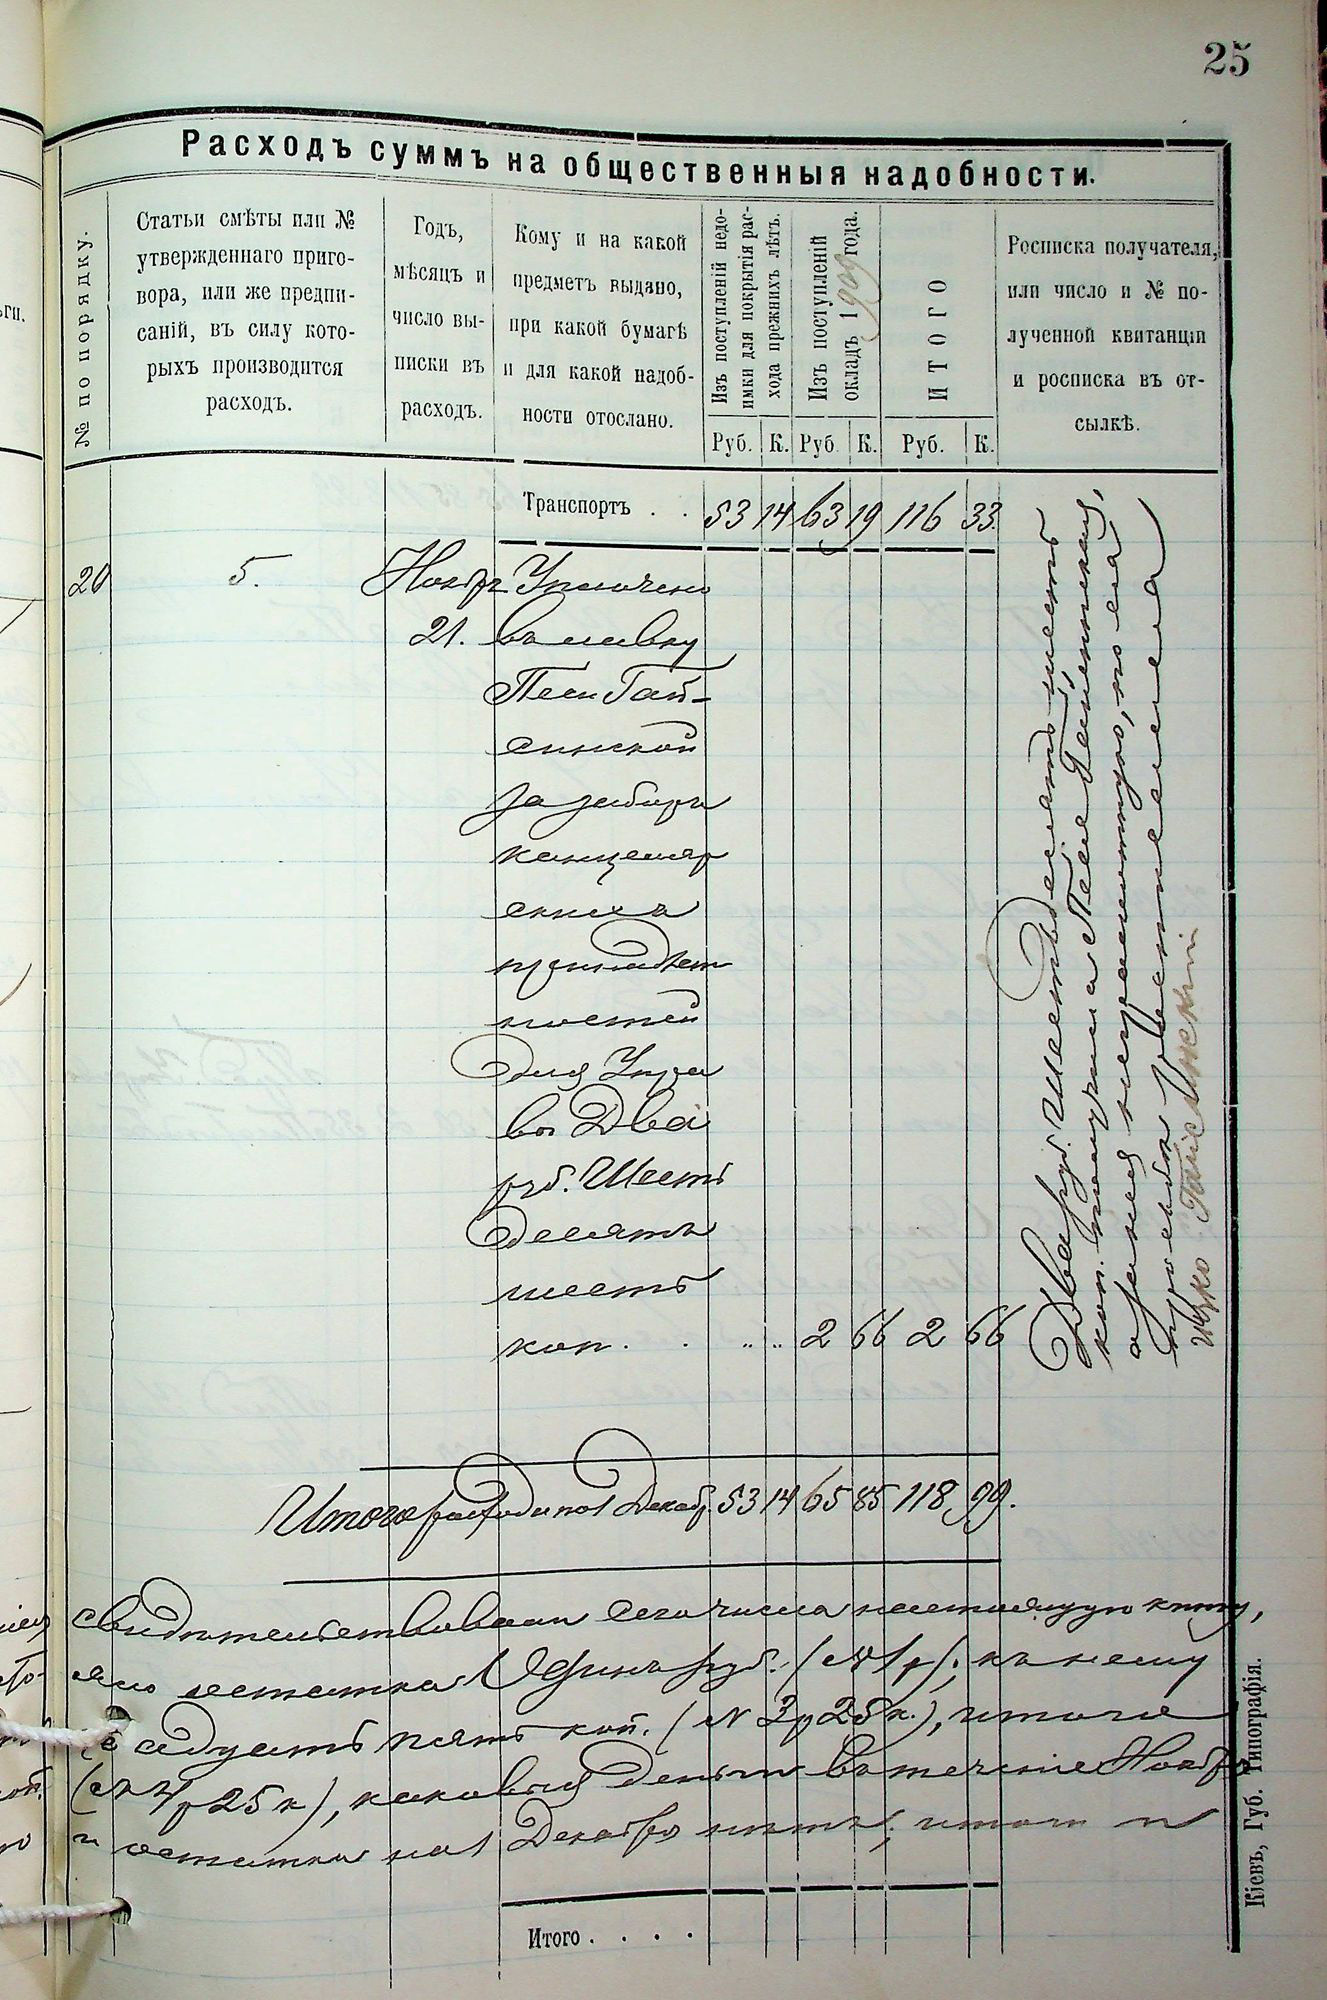 25
Расходъ суммъ на общественныя надобности.
№ по порядку.
Статьи смѣты или №
утвержденнаго приго-
вора, или же предпи-
саній, въ силу кото-
рыхъ производится
расходъ.
Годъ,
мѣсяцъ и
число вы-
писки въ
расходъ.
Кому и на какой
предметъ выдано,
при какой бумагѣ
и для какой надоб-
ности отослано.
Изъ поступленій недо-
имки для покрытія рас-
хода прежнихъ лѣтъ.
Изъ поступленій
окладъ 1909 года.
ИТОГО
Росписка получателя,
или число и № по-
лученной квитанціи
и росписка въ от-
сылкѣ.
Руб. К. Руб. К. Руб. К.
Транспортъ . . 53 14 63 19 116 33.
20 5. Ноябр Уплочено
21. въ лавку
Песи Гай-
синской
за заборъ
канцеляр
скихъ
принадлеж
ностей
для Упра
вы Два
руб. Шесть
десятъ
шесть
коп. . „ „ 2 66 2 66
Два руб. Шестьдесятъ шесть
коп. получила Песя Гайсинская,
а за нея неграмотную, по ея
просьбѣ росписался
Ицко Гайсинскій
Итого расхода по 1 Декаб. 53 14 65 85 118 99.
свидѣтельствовали сего числа настоящую книгу,
остатка Одинъ руб. (1 р); къ нему
двадцать пять коп. (3 р 25 к.), итого
(4 р 25 к), каковыя деньги въ теченіе Ноябр
и остатка на 1 Декабря нѣтъ;
Итого . . . .
Кіевъ, Губ. Типографія.